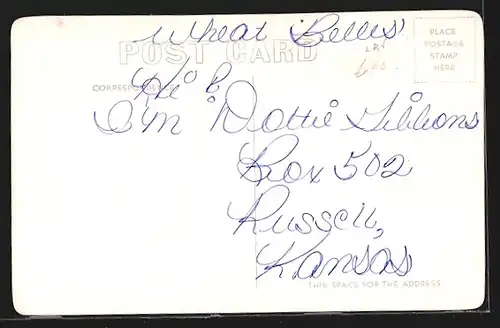 Wheat Belles
POST CARD
PLACE
POSTAGE
STAMP
HERE
CORRESPONDENCE
Hi
I'm Dottie Gibbons
Box 502
Russell,
Kansas
THIS SPACE FOR THE ADDRESS